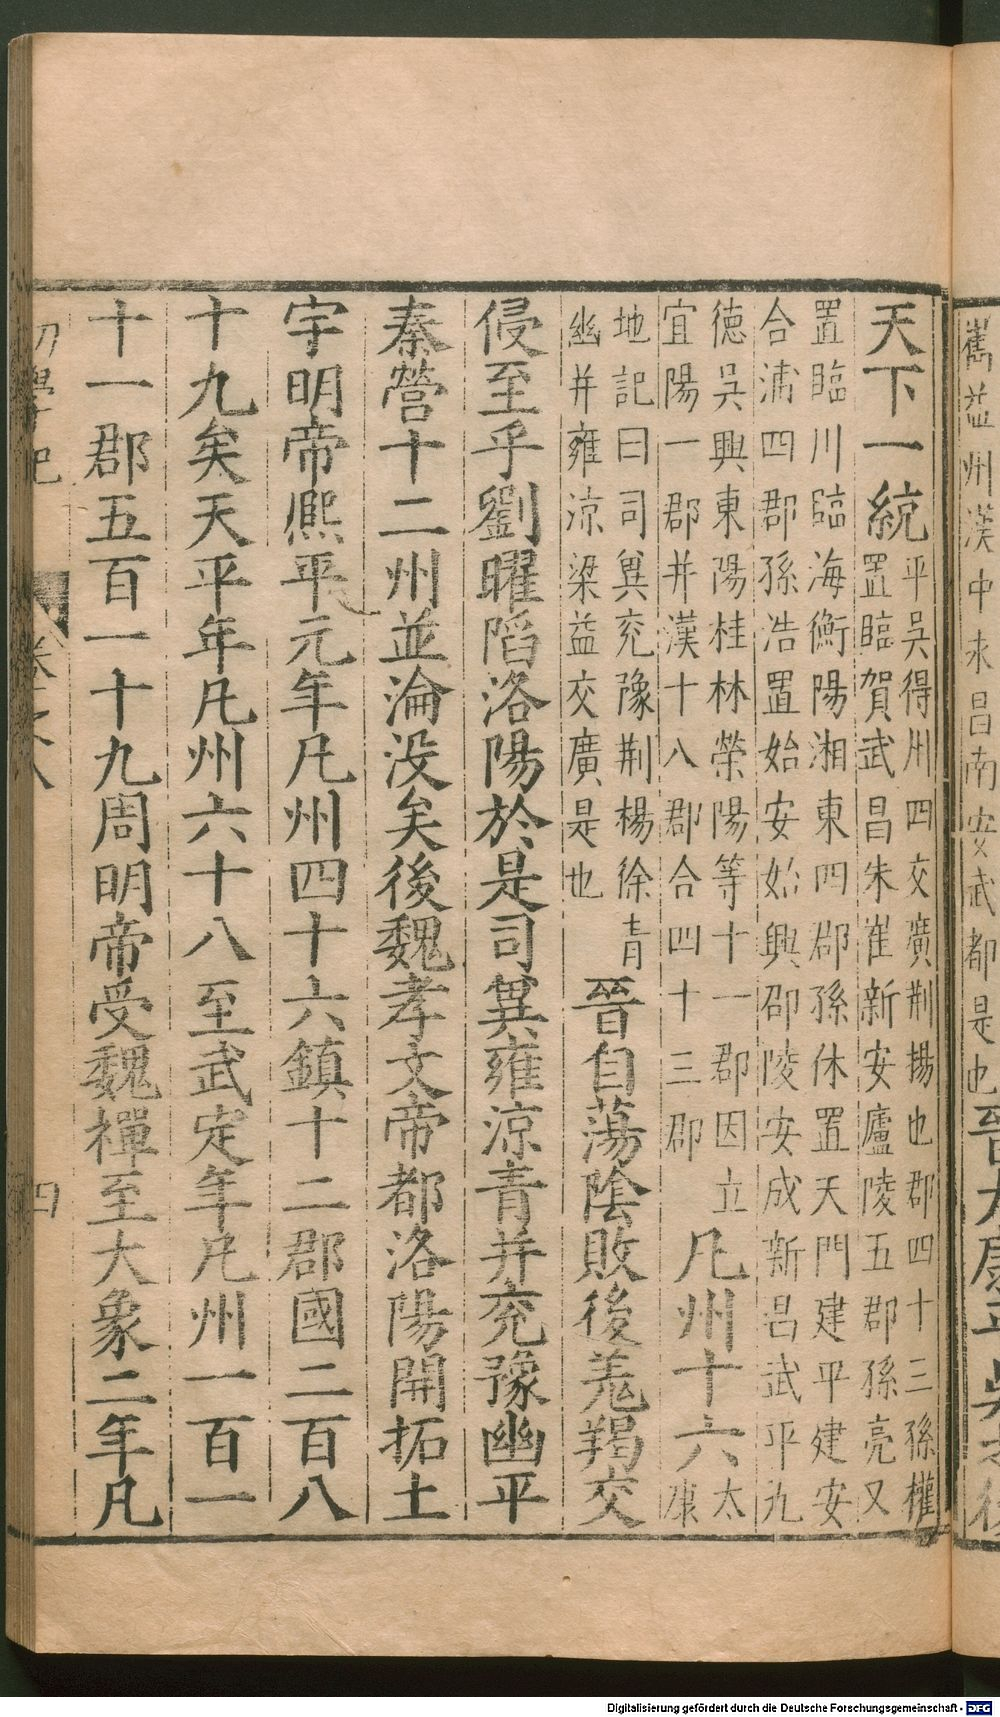 舊益州漢中永昌南安武都是也晉太康平吳
天下一統平吳得州四交廣荆揚也郡四十三孫權
置臨賀武昌朱崔新安廬陵五郡孫亮又
置臨川臨海衡陽湘東四郡孫休置天門建平建安
合浦四郡孫浩置始安始興邵陵安成新昌武平九
徳吳興東陽桂林榮陽等十一郡因立
宜陽一郡并漢十八郡合四十三郡
凡州十六太
康
地記曰司兾兖豫荆楊徐青
幽并雍凉梁益交廣是也
晉自蕩陰敗後羗羯交
侵至乎劉曜䧟洛陽於是司兾雍凉青并兖豫幽平
秦營十二州並淪没矣後魏孝文帝都洛陽開拓土
宇明帝熈平元年凡州四十六鎮十二郡國二百八
十九矣天平年凡州六十八至武定年凡州一百一
十一郡五百一十九周明帝受魏禪至大象二年凡
初學記 卷之八 四
Digitalisierung gefördert durch die Deutsche Forschungsgemeinschaft - DFG